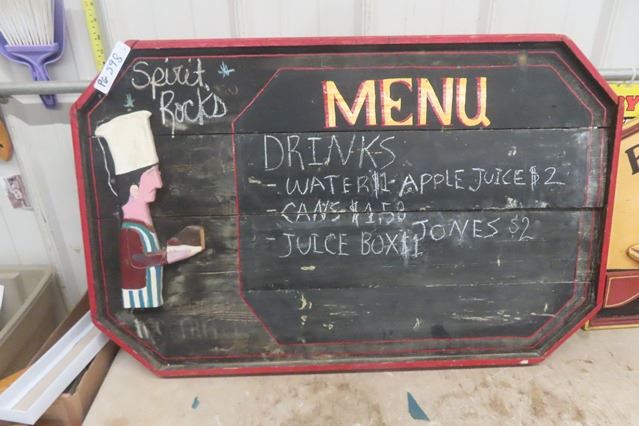 Spirit
Rocks
MENU
DRINKS
- WATER $1 - APPLE JUICE $2
- CANS $1,50
- JONES $2
- JUICE BOX $1